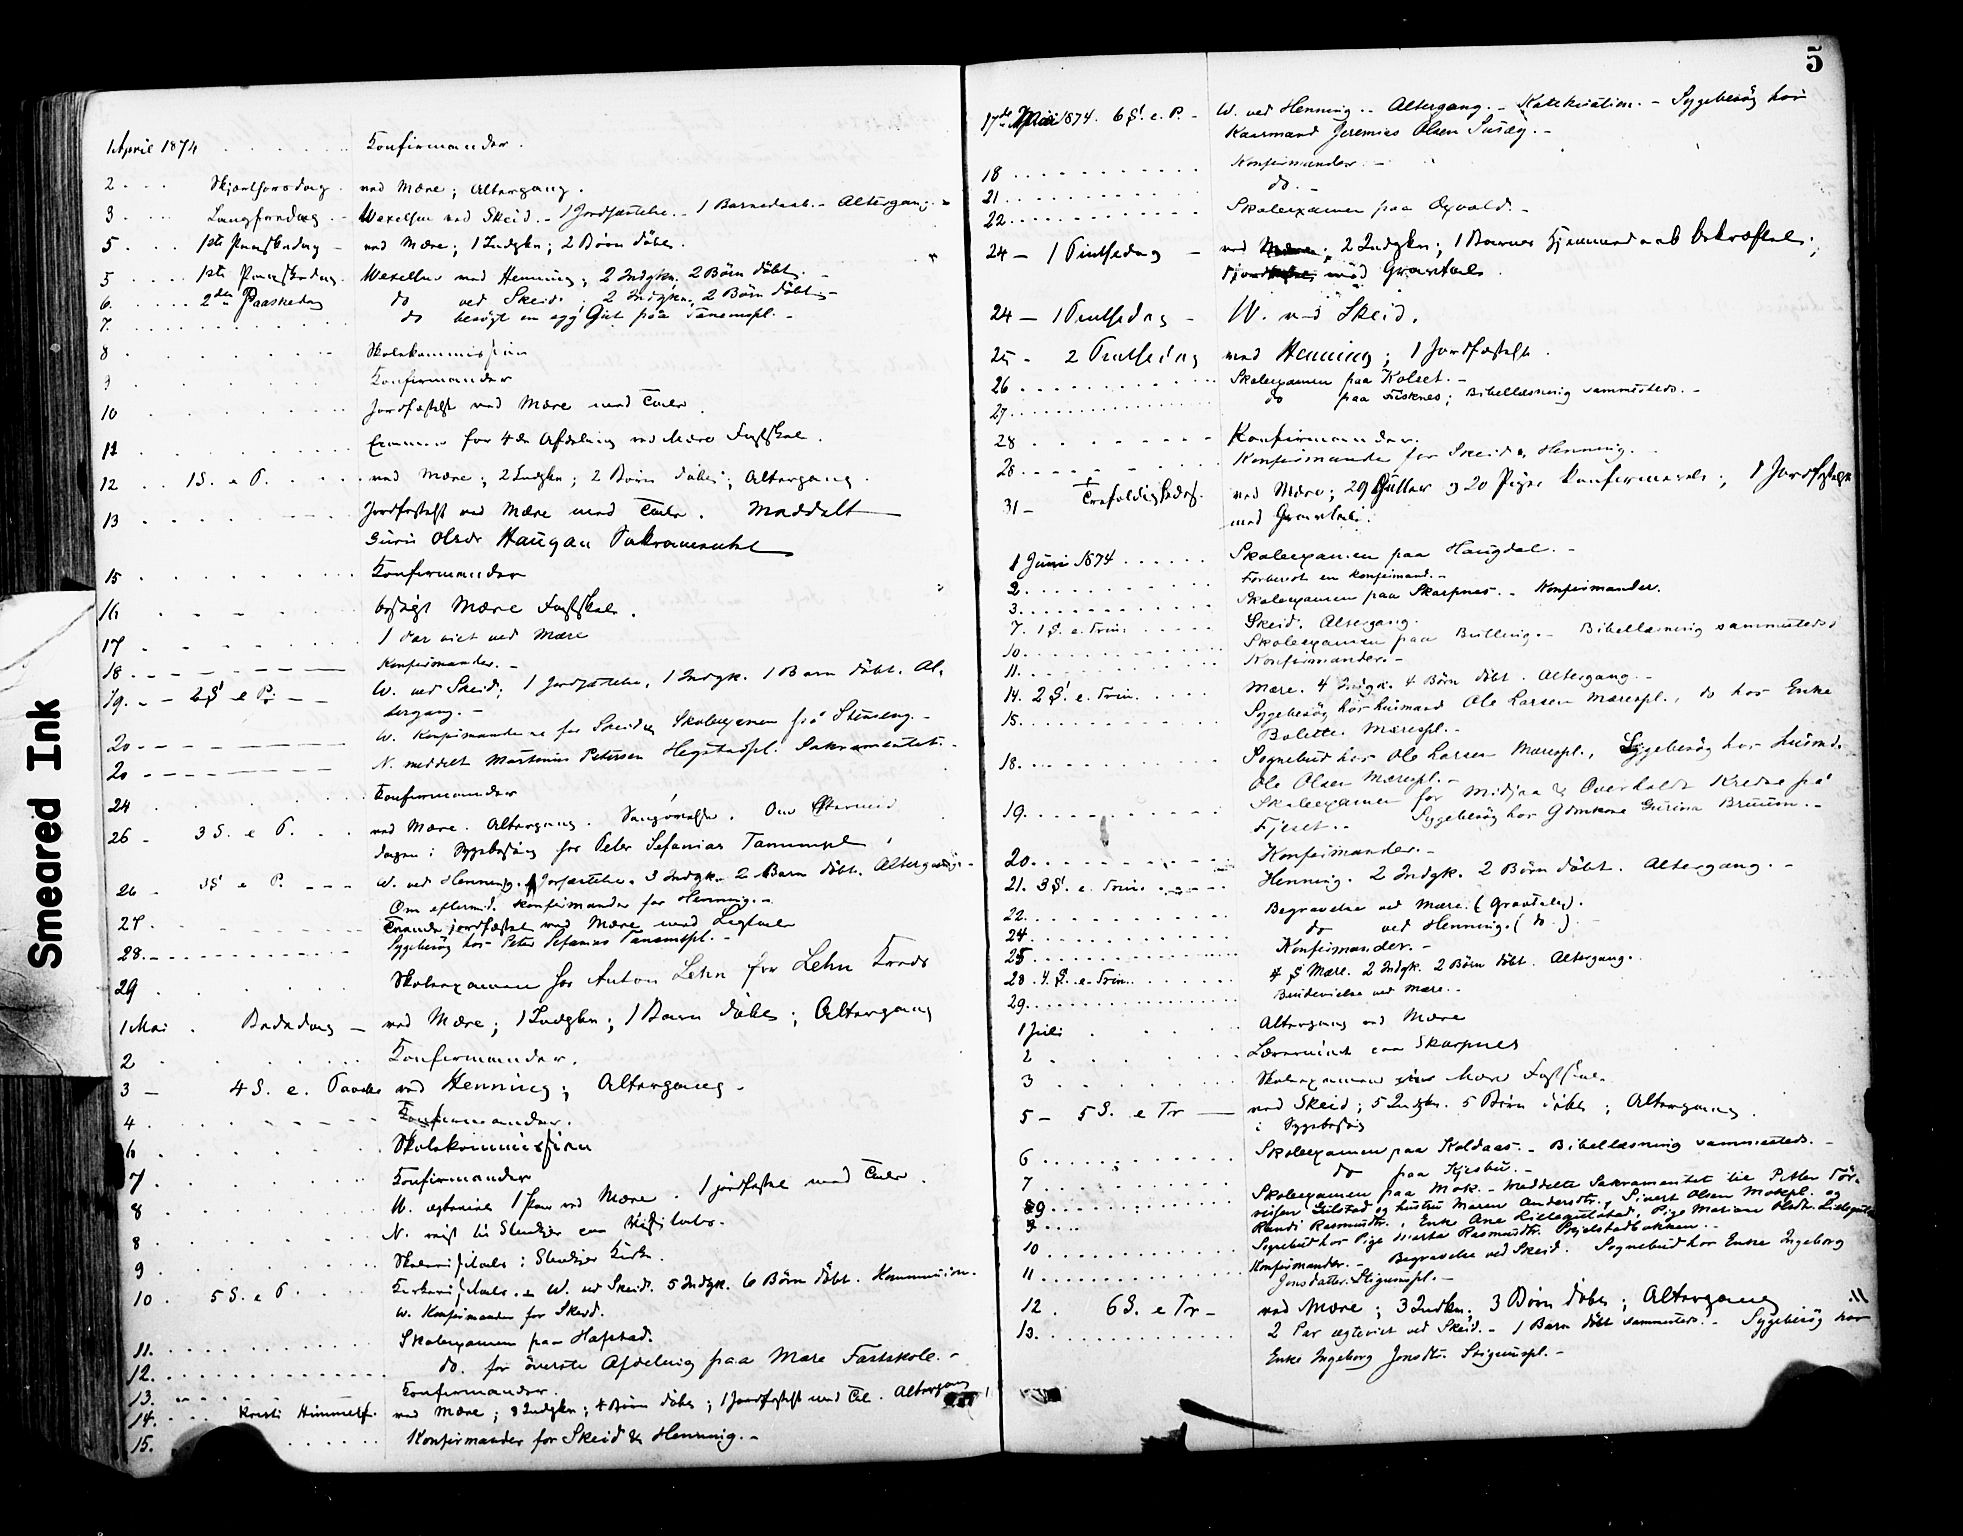 Smeared Ink
1 April 1874 . . . . . . Konfirmander.
2 . . . Skjærthorsdag . ved Mære; Altergang.
3 . . . Langfredag . - Wexelsen ved Skeid. - 1 Jordfæstelse. - 1 Barnedaab. - Altergang. -
5 . . . 1ste Paaskedag - ved Mære; 1 Indgkn; 2 Børn døbes.
5 . . . 1ste Paaskedag. Wexelsen ved Henning; 2 Indgkn. 2 Børn döbt. -
6. . . . 2den Paaskedag do ved Skeid. 2 Indgkn. 2 Børn döbt. -
7. . . . . . . do besøgt en syg Gut paa Tanemspl. -
8 . . . . . . Skolekommission
9 . . . . . . Konfirmander
10 . . . . . . Jordfæstelse ved Mære med Tale.
11 . . . . . . Examen for 4de Afdeling ved Mære Fastskole.
12 . . 1 S. e P. . . . ved Mære; 2 Indgkn; 2 Børn døbes; Altergang.
13 . . . . . . Jordfæstelse ved Mære med Tale. Meddelt
Guri Olsdr Haugan Sakramentet
15 . . . . . . Konfirmander
16 . . . . . . besøgt Mære Fastskole.
17 . . . . . . 1 Par viet ved Mære
18 . - - - - - Konfirmander. -
19. - - 2 S. e P. - - W. ved Skeid; 1 Jordfæstelse, 1 Indgk. 1 Barn döbt. Al-
tergang. -
20 - - - - - - W. Konfirmanderne for Skeid og Skoleexamen paa Stenseng. -
20 - - - - - - N. meddelt Martinus Petersen Hegstadspl. Sakramentet. -
24 . . . . . . Konfirmander
26 - 3 S. e P. . . ved Mære. Altergang. Om Eftermid
dagen i Sygebesøg hos Peter Sefanias Tanemspl.
26 - 3 S. e P. - - - W. ved Henning. 1 Jordfæstelse. 3 Indgk. 2 Barn döbt. Altergang. -
Om eftermid. Konfirmander for Henning. -
27. . . . . . jordfæstet ved Mære med Ligtale
28. - . . . . . Sygebesög hos Peter Sefanias Tanemspl. -
29 . . . . . . Skoleexamen hos Anton Lehn for Lehn Kreds
1 Mai . Bededag - ved Mære; 1 Indgkn; 1 Barn døbes; Altergang
2 . . . . . . Konfirmander.
3 - 4 S. e. Paaske ved Henning; Altergang -
4 . . . . . . Konfirmander.
6 . . . . . . Skolekommission
7 . . . . . . Konfirmander
8 . . . . . . W. ægteviet 1 Par ved Mære. 1 jordfæstet med Tale.
8 . . . . . . N. reist til Stenkjær
9 . . . . . . i Stenkjær Kirke.
10 . 5 S. e P. . . W. ved Skeid. 5 Indgk. 6 Börn döbt. Kommunion.
W. Konfirmander for Skeid.
11. . . . . . . Skoleexamen paa Hafstad.
12. . . . . . . do. for överste Afdeling paa Mære Fastskole. -
13. . . . . . . Konfirmander.
14. . . . Kristi Himmelf. ved Mære; 8 Indgkn; 4 Børn døbes; 1 Jordfæstelse med Tal. Altergang
15. . . . . . . Konfirmander for Skeid & Henning. -
5
17de Mai 1874. 6 S. e. P. - W. ved Henning. - Altergang. - Katekisation. - Sygebesög hos
Kaarmand Jeremias Olsen
18 . . . . . . Konfirmander. -
21 . . . . . . do. -
22 . . . . . . Skoleexamen paa Oxvold. -
24 - 1 Pintsedag - ved Mære; 2 Indgkn; 1 Barnes Hjemmedaab bekræftet;
med Gravtale.
24 - 1 Pintsedag - W. ved Skeid.
25 - 2 Pintsedag ved Henning; 1 Jordfæstelse.
26 . . . . . . Skoleexamen paa Kolset. -
27 . . . . . . do paa Fisknes; Bibellæsning sammesteds. -
28 . . . . . . Konfirmander.
28 . . . . . . Konfirmander for Skeid & Henning.
31 - Trefoldighedsf. ved Mære; 29 Gutter og 20 Piger konfirmeredes; 1 Jordfæstelse
med Gravtale.
1 Juni 1874 . . . . . . Skoleexamen paa Haugdal. -
2 . . . . . . Forberedt en konfirmand. -
3. . . . . . . Skoleexamen paa Skarpnes. - Konfirmander.
7. 1 S. e. Trin. . . . Skeid. Altergang.
10. . . . . . . Skoleexamen paa Bülling. - Bibellæsning sammesteds.
11. . . . . . . Konfirmander. -
14. 2 S. e. Trin. . . . Mære. 4 Indgk. 4 Börn döbt. Altergang. -
15. . . . . . . Sygebesög hos husmand Ole Larsen Mærespl., do hos Enke
Bolette Mærespl. -
18. . . . . . . Sognebud hos Ole Larsen Mærespl., Sygebesög hos husmd.
Ole Olsen Mærespl. -
19. . . . . . . Skoleexamen for Midjaa & Overholdt Kredse paa
Fjeset. - Sygebesög hos Gdmkone Gurina Bruum. -
20. . . . . . . Konfirmander. -
21. 3 S. e. Trin. . . . Henning. 2 Indgk. 2 Börn döbt. Altergang. -
22. . . . . . . Begravelse ved Mære. (Gravtale).
24 . . . . . . do ved Henning. (do.)
25 . . . . . . Konfirmander. -
28. 4. S. e. Trin. . . . 4 S Mære. 2 Indgk. 2 Börn döbt. Altergang. -
29. . . . . . . ved Mære. -
1 Juli . . . . . Altergang ved Mære
2 . . . . . . Lærermöde paa Skarpnes
3 . . . . . . Skoleexamen ved Mære Fastskole.
5 - 5 S. e Tr - ved Skeid; 5 Indgkn. 5 Børn døbes; Altergang.
i Sygebesøg
6 . . . . . . Skoleexamen paa Koldaas. - Bibellæsning sammesteds. -
7 . . . . . . do paa Kjesbu. -
9 . . . . . . Skoleexamen paa Mok. - Meddelte Sakramentet til Petter Tör-
risen Gulstad og hustru Maren Andersdtr., Sivert Olsen Mokpl. og
Randi Rasmusdtr., Enke Ane Lillegulstad, Pige Mariane Olsdtr. Lillegulst
10 . . . . . . Sognebud hos Pige Marta Rasmusdtr.
11 . . . . . . Konfirmander. - Begravelse ved Skeid. Sognebud hos Enke Ingeborg
Jonsdatter Stigumspl. -
12 . 6 S. e Tr - ved Mære; 3 Indkn; 3 Børn døbes; Altergang
13. . . . . . . 2 Par ægteviet ved Skeid. - 1 Barn döbt sammesteds. - Sygebesög hos
Enke Ingeborg Jonsdtr. Stigumspl. -